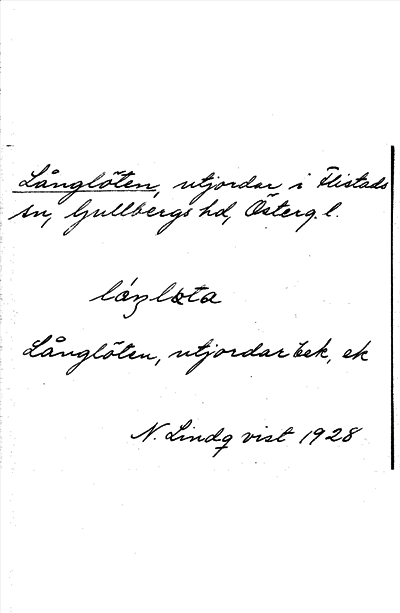 Långlöten, utjordar i Flistads
sn, Gullbergs hd, Österg. l.
Långlöten, utjordar bek, ek
N. Lindqvist 1928